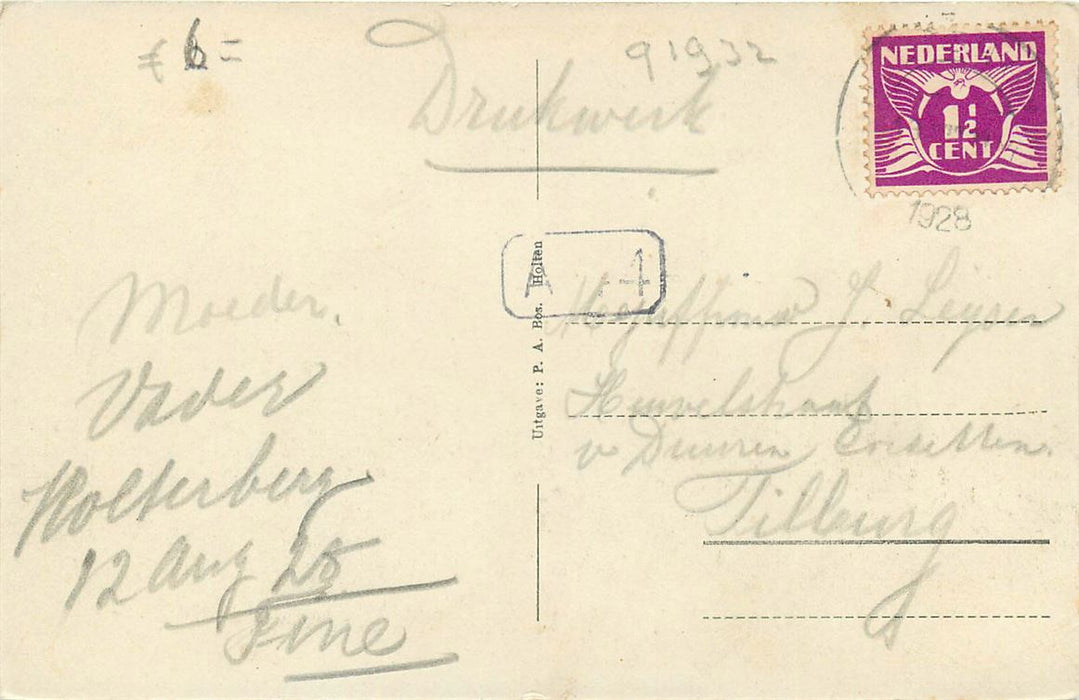 f 6 =
91932
Drukwerk
NEDERLAND
1½
CENT
1928
A 1
Uitgave: P. A. Bos. Holten
Moeder.
Vader
Holterberg
12 Aug 28
Fine
Mejuffrouw J. Leyser
Heuvelstraat
v Duuren
Tilburg